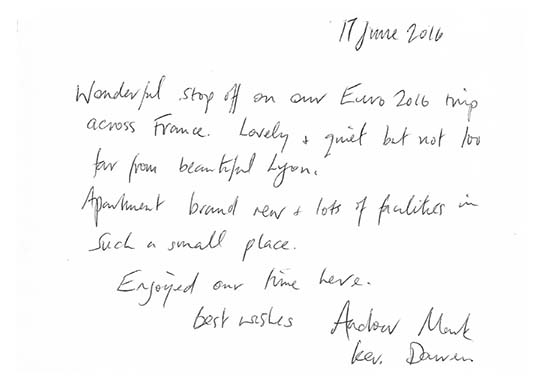 17 June 2016
Wonderful stop off on our Euro 2016 trip
across France. Lovely + quiet but not too
far from beautiful Lyon.
Apartment brand new + lots of facilities in
such a small place.
Enjoyed our time here.
best wishes Andrew Mark
Kev. Darren